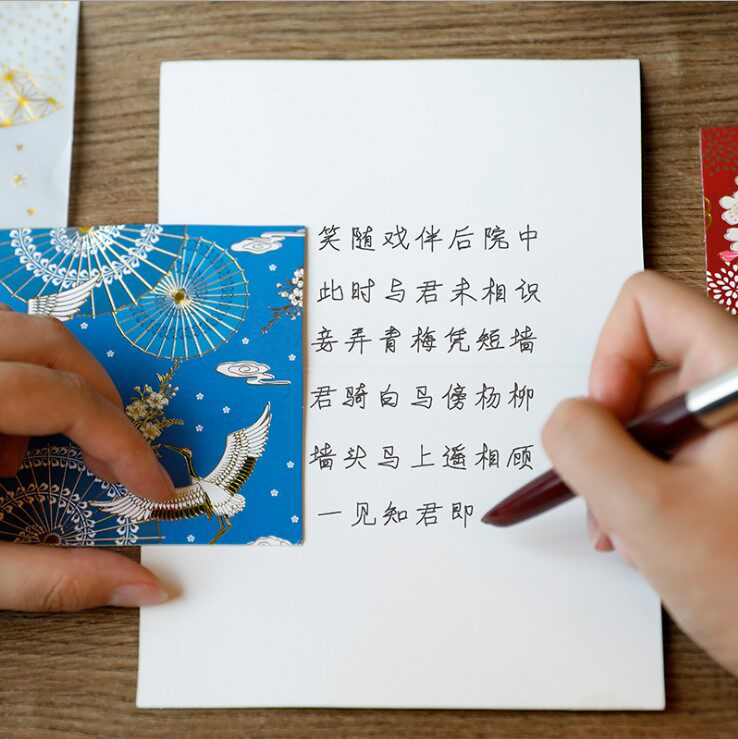 笑随戏伴后院中
此时与君未相识
妾弄青梅凭短墙
君骑白马傍杨柳
墙头马上遥相顾
一见知君即